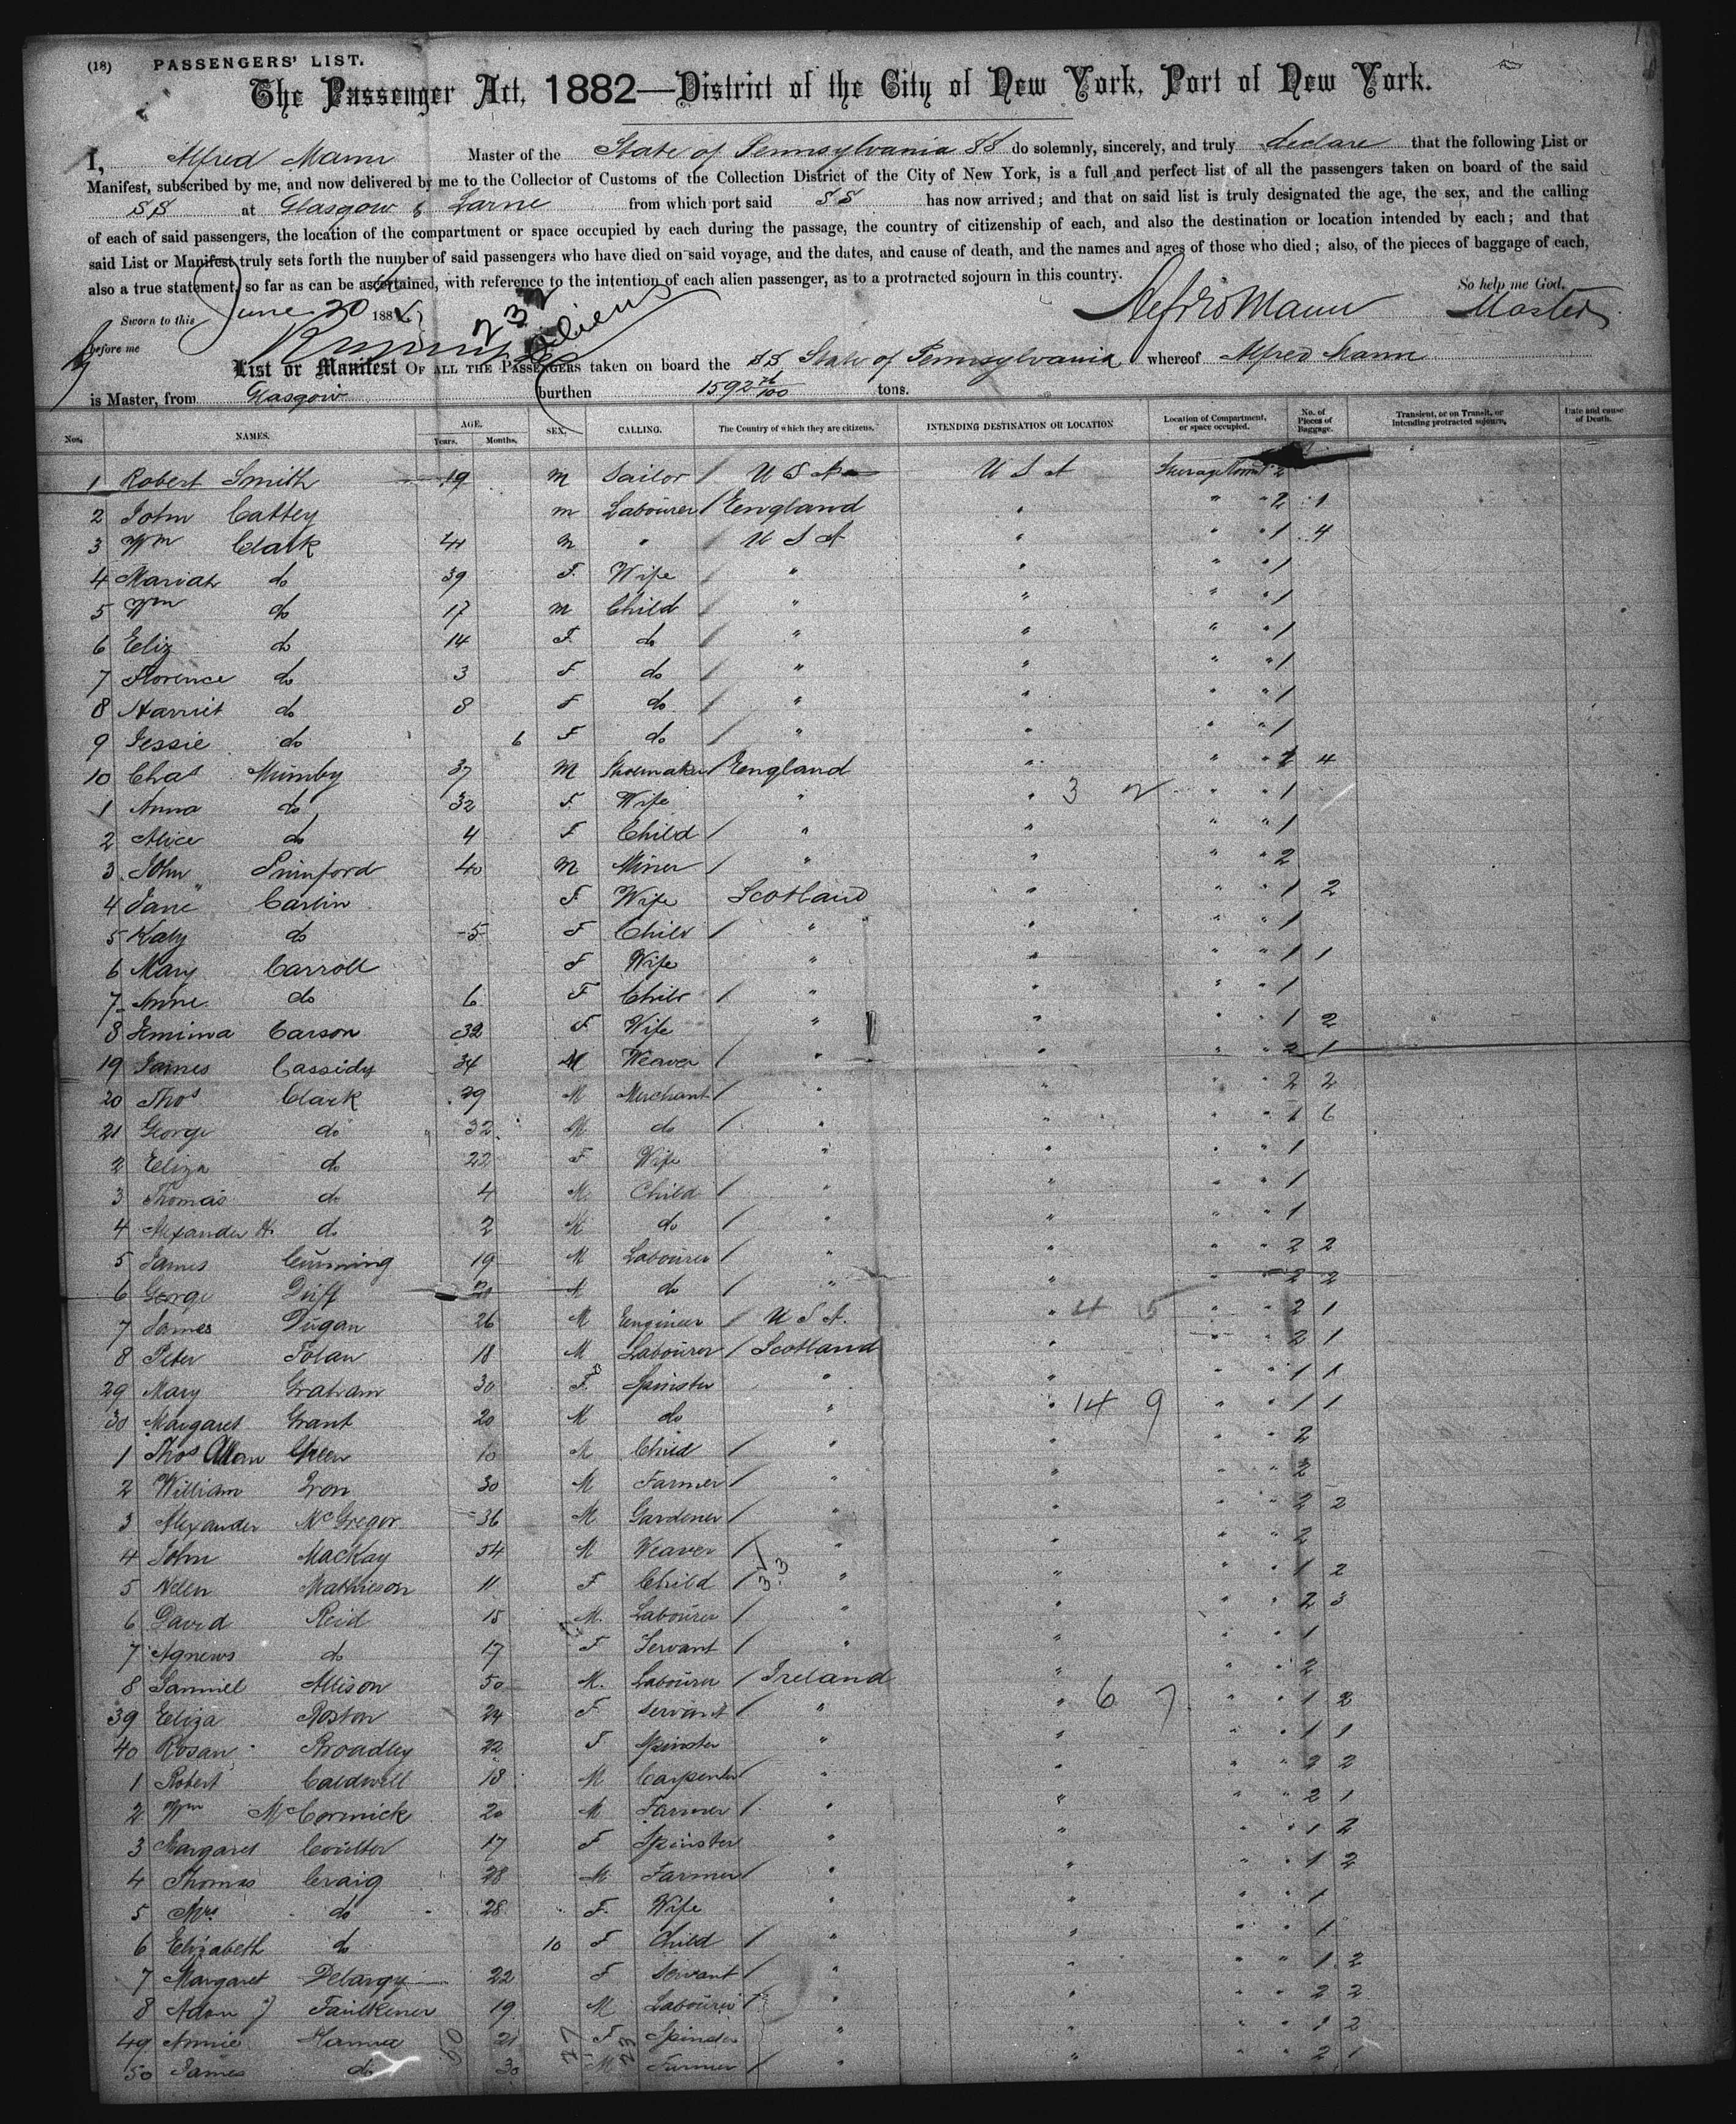 (18) PASSENGERS' LIST.
The Passenger Act, 1882—District of the City of New York, Port of New York.
I, Alfred Mann Master of the State of Pennsylvania SS do solemnly, sincerely, and truly declare that the following List or
Manifest, subscribed by me, and now delivered by me to the Collector of Customs of the Collection District of the City of New York, is a full and perfect list of all the passengers taken on board of the said
SS at Glasgow & Larne from which port said SS has now arrived; and that on said list is truly designated the age, the sex, and the calling
of each of said passengers, the location of the compartment or space occupied by each during the passage, the country of citizenship of each, and also the destination or location intended by each; and that
said List or Manifest truly sets forth the number of said passengers who have died on said voyage, and the dates, and cause of death, and the names and ages of those who died; also, of the pieces of baggage of each,
also a true statement, so far as can be ascertained, with reference to the intention of each alien passenger, as to a protracted sojourn in this country. So help me God.
Sworn to this June 20 188 Alfred Mann Master
before me 232 Aliens
List or Manifest OF ALL THE PASSENGERS taken on board the SS State of Pennsylvania whereof Alfred Mann
is Master, from Glasgow burthen 1592 tons.
Nos. NAMES. AGE. Years. Months. SEX. CALLING. The Country of which they are citizens. INTENDING DESTINATION OR LOCATION Location of Compartment, or space occupied. No. of Pieces of Baggage. Transient, or on Transit, or Intending protracted sojourn. Date and cause of Death.
1 Robert Smith 19 m Sailor / U S A U S A Steerage Compt 2
2 John Cattey m Labourer / England " " " 2 1
3 Wm Clark 41 m " / U S A " " " 1 4
4 Mariah do 39 F Wife / " " " " 1
5 Wm do 17 m Child / " " " " 1
6 Eliz do 14 F do / " " " " 1
7 Florence do 3 F do / " " " " 1
8 Harriet do 8 F do / " " " " 1
9 Jessie do 6 F do / " " " " 1
10 Chas Mumby 37 M Shoemaker / England " " " 4
1 Anna do 32 F Wife " " 3 2 " " 1
2 Alice do 4 F Child / " " " " 1
3 John 40 m Miner / " " " " 2
4 Jane Carlin F Wife Scotland " " " 1 2
5 Katy do 5 F Child / " " " " 1
6 Mary Carroll F Wife " " " " 1 1
7 Anne do 6 F Child / " " " " 1
8 Jemima Carson 32 F Wife " " " " 1 2
19 James Cassidy 34 M Weaver / " " " " 2 1
20 Thos Clark 29 M Merchant / " " " " 2 2
21 George do 32 M do / " " " " 1 6
2 Eliza do 22 F Wife " " " " 1
3 Thomas do 4 M Child / " " " " 1
4 Alexander H. do 2 M do / " " " " 1
5 James Cumming 19 M Labourer / " " " " 2 2
6 George Duff 21 M do / " " " " 2 2
7 James Dugan 26 M Engineer / U S A. " 4 5 " " 2 1
8 Peter Folan 18 M Labourer / Scotland " " " 2 1
29 Mary Graham 30 F Spinster " " " " 1 1
30 Margaret Grant 20 M do " " 14 9 " " 1 1
1 Thos Adam Green 10 M Child / " " 2
2 William Iron 30 M Farmer / " " " " 2
3 Alexander McGregor 36 M Gardener / " " " " 2 2
4 John MacKay 54 M Weaver / " " " " 2
5 Helen Mathieson 11 F Child / 33 " " " " 1 2
6 David Reid 15 M. Labourer / " " " " 2 3
7 Agnews do 17 F Servant / " " " " 1
8 Samuel Allison 50 M. Labourer / Ireland " " " 2
39 Eliza Boston 24 F Servant / " " 6 7 " " 1 2
40 Rosan Broadley 22 F Spinster " " " " 1 1
1 Robert Caldwell 18 M Carpenter / " " " " 2 2
2 Wm McCormick 20 M Farmer / " " " " 2 1
3 Margaret Coulter 17 F Spinster " " " " 1 2
4 Thomas Craig 28 M Farmer / " " " " 1 2
5 Mrs do 28 F. Wife " " " " 1
6 Elizabeth do 10 F Child / " " " " 1
7 Margaret Delargy 22 F Servant / " " " " 1 2
8 Adam J Faulkener 19 M Labourer / " " " " 2 2
49 Annie Hanna 21 F Spinster " " " " 1 2
50 James do 30 M Farmer / " " " " 2 1